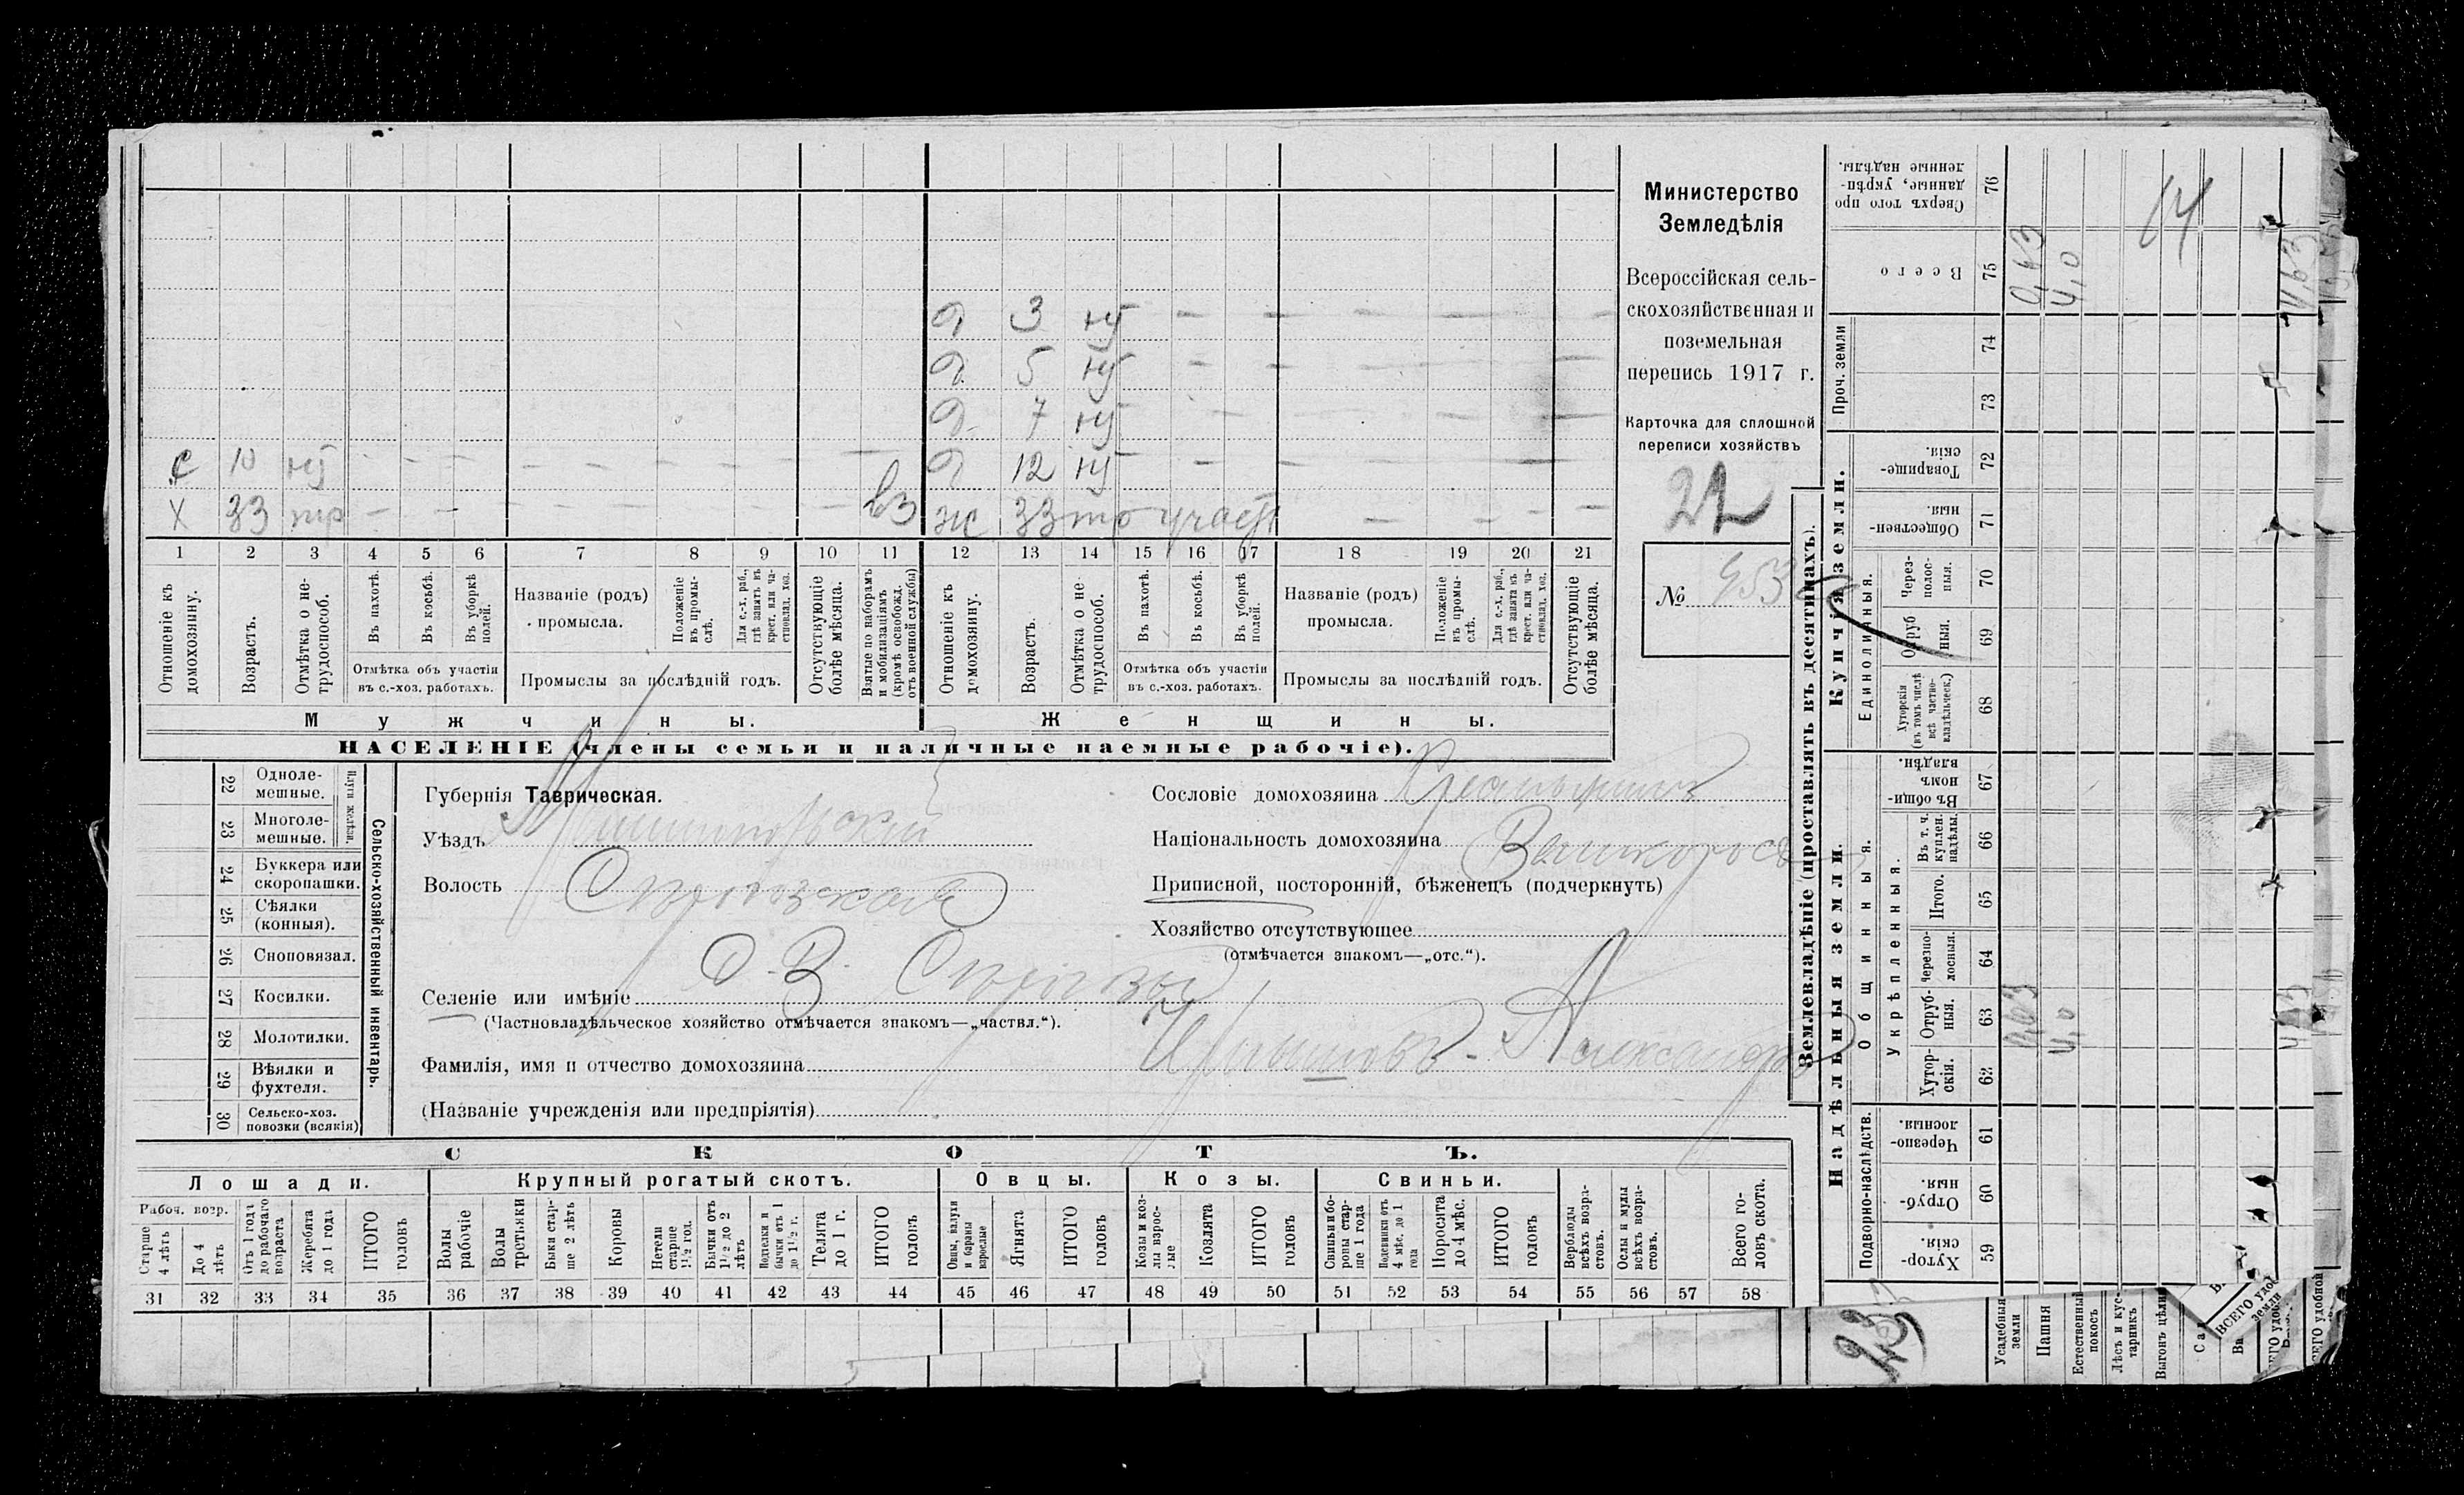 с 10 ну — — — — — — — —
х 33 тр — — — — — — — вз
д 3 ну — — — — — —
д. 5 ну — — — — —
д. 7 ну — — — — —
д 12 ну — — — — — —
ж 33 тр участ — — — —
1 2 3 4 5 6 7 8 9 10 11 12 13 14 15 16 17 18 19 20 21
Отношеніе къ домохозяину.
Возрастъ.
Отмѣтка о не-трудоспособ.
Въ пахотѣ.
Въ косьбѣ.
Въ уборкѣ полей.
Отмѣтка объ участіи
въ с.-хоз. работахъ.
Названіе (родъ)
промысла.
Положеніе въ промы-слѣ.
Для с.-х. раб., гдѣ занятъ въ крест. или ча-стновлад. хоз.
Промыслы за послѣдній годъ.
Отсутствующіе болѣе мѣсяца.
Взятые по наборамъ и мобилизаціямъ (кромѣ освобожд. отъ военной службы)
Отношеніе къ домохозяину.
Возрастъ.
Отмѣтка о не-трудоспособ.
Въ пахотѣ.
Въ косьбѣ.
Въ уборкѣ полей.
Отмѣтка объ участіи
въ с.-хоз. работахъ.
Названіе (родъ)
промысла.
Положеніе въ промы-слѣ.
Для с.-х. раб., гдѣ занята въ крест. или ча-стновлад. хоз.
Промыслы за послѣдній годъ.
Отсутствующіе болѣе мѣсяца.
Мужчины.
Женщины.
НАСЕЛЕНІЕ (члены семьи и наличные наемные рабочіе).
Министерство
Земледѣлія
Всероссійская сель-
скохозяйственная и
поземельная
перепись 1917 г.
Карточка для сплошной
переписи хозяйствъ
22
№ 453
22 Одноле-мешные.
23 Многоле-мешные.
Плуги желѣзн.
24 Буккера или скоропашки.
25 Сѣялки (конныя).
26 Сноповязал.
27 Косилки.
28 Молотилки.
29 Вѣялки и фухтеля.
30 Сельско-хоз. повозки (всякія)
Сельско-хозяйственный инвентарь.
Губернія Таврическая.
Уѣздъ
Волость
Селеніе или имѣніе
(Частновладѣльческое хозяйство отмѣчается знакомъ—„частвл.“).
Фамилія, имя и отчество домохозяина Александръ
(Названіе учрежденія или предпріятія)
Сословіе домохозяина Крестьянинъ
Національность домохозяина Великороссъ
Приписной, посторонній, бѣженецъ (подчеркнуть)
Хозяйство отсутствующее
(отмѣчается знакомъ—„отс.“).
СКОТЪ.
Лошади.
Крупный рогатый скотъ.
Овцы.
Козы.
Свиньи.
Рабоч. возр.
Старше 4 лѣтъ
До 4 лѣтъ
Отъ 1 года до рабочаго возраста
Жеребята до 1 года
ИТОГО головъ
Волы рабочіе
Волы третьяки
Быки стар-ше 2 лѣтъ
Коровы
Нетели старше 1½ год.
Бычки отъ 1½ до 2 лѣтъ
Подтелки и бычки отъ 1 до 1½ г.
Телята до 1 г.
ИТОГО головъ
Овцы, валухи и бараны взрослые
Ягнята
ИТОГО головъ
Козы и коз-лы взрос-лые
Козлята
ИТОГО головъ
Свиньи и бо-ровы стар-ше 1 года
Подсвинки отъ 4 мѣс. до 1 года
Поросята до 4 мѣс.
ИТОГО головъ
Верблюды всѣхъ возра-стовъ.
Ослы и мулы всѣхъ возра-стовъ.
Всего го-ловъ скота.
31 32 33 34 35 36 37 38 39 40 41 42 43 44 45 46 47 48 49 50 51 52 53 54 55 56 57 58
Землевладѣніе (проставлять въ десятинахъ).
Надѣльныя земли.
Купчія земли.
Проч. земли
Подворно-наслѣдств.
Общинныя.
Укрѣпленныя.
Единоличныя.
Хутор-скія. 59
Отруб-ныя. 60
Черезпо-лосныя. 61
Хутор-скія. 62
Отруб-ныя. 63
Черезпо-лосныя. 64
Итого. 65
Въ т. ч. куплен. надѣлы. 66
Въ общин-номъ владѣн. 67
Хуторскія (въ томъ числѣ всѣ частно-владѣльческ.) 68
Отруб-ныя. 69
Через-полос-ныя. 70
Обществен-ныя. 71
Товарище-скія. 72
73
74
Всего 75
Сверхъ того про-данные, укрѣп-ленные надѣлы. 76
0,63
4,0
4,63
14
23
Усадебныя земли
Пашня
Естественный покосъ
Лѣсъ и кус-тарникъ
Выгонъ
ВСЕГО удобной земли